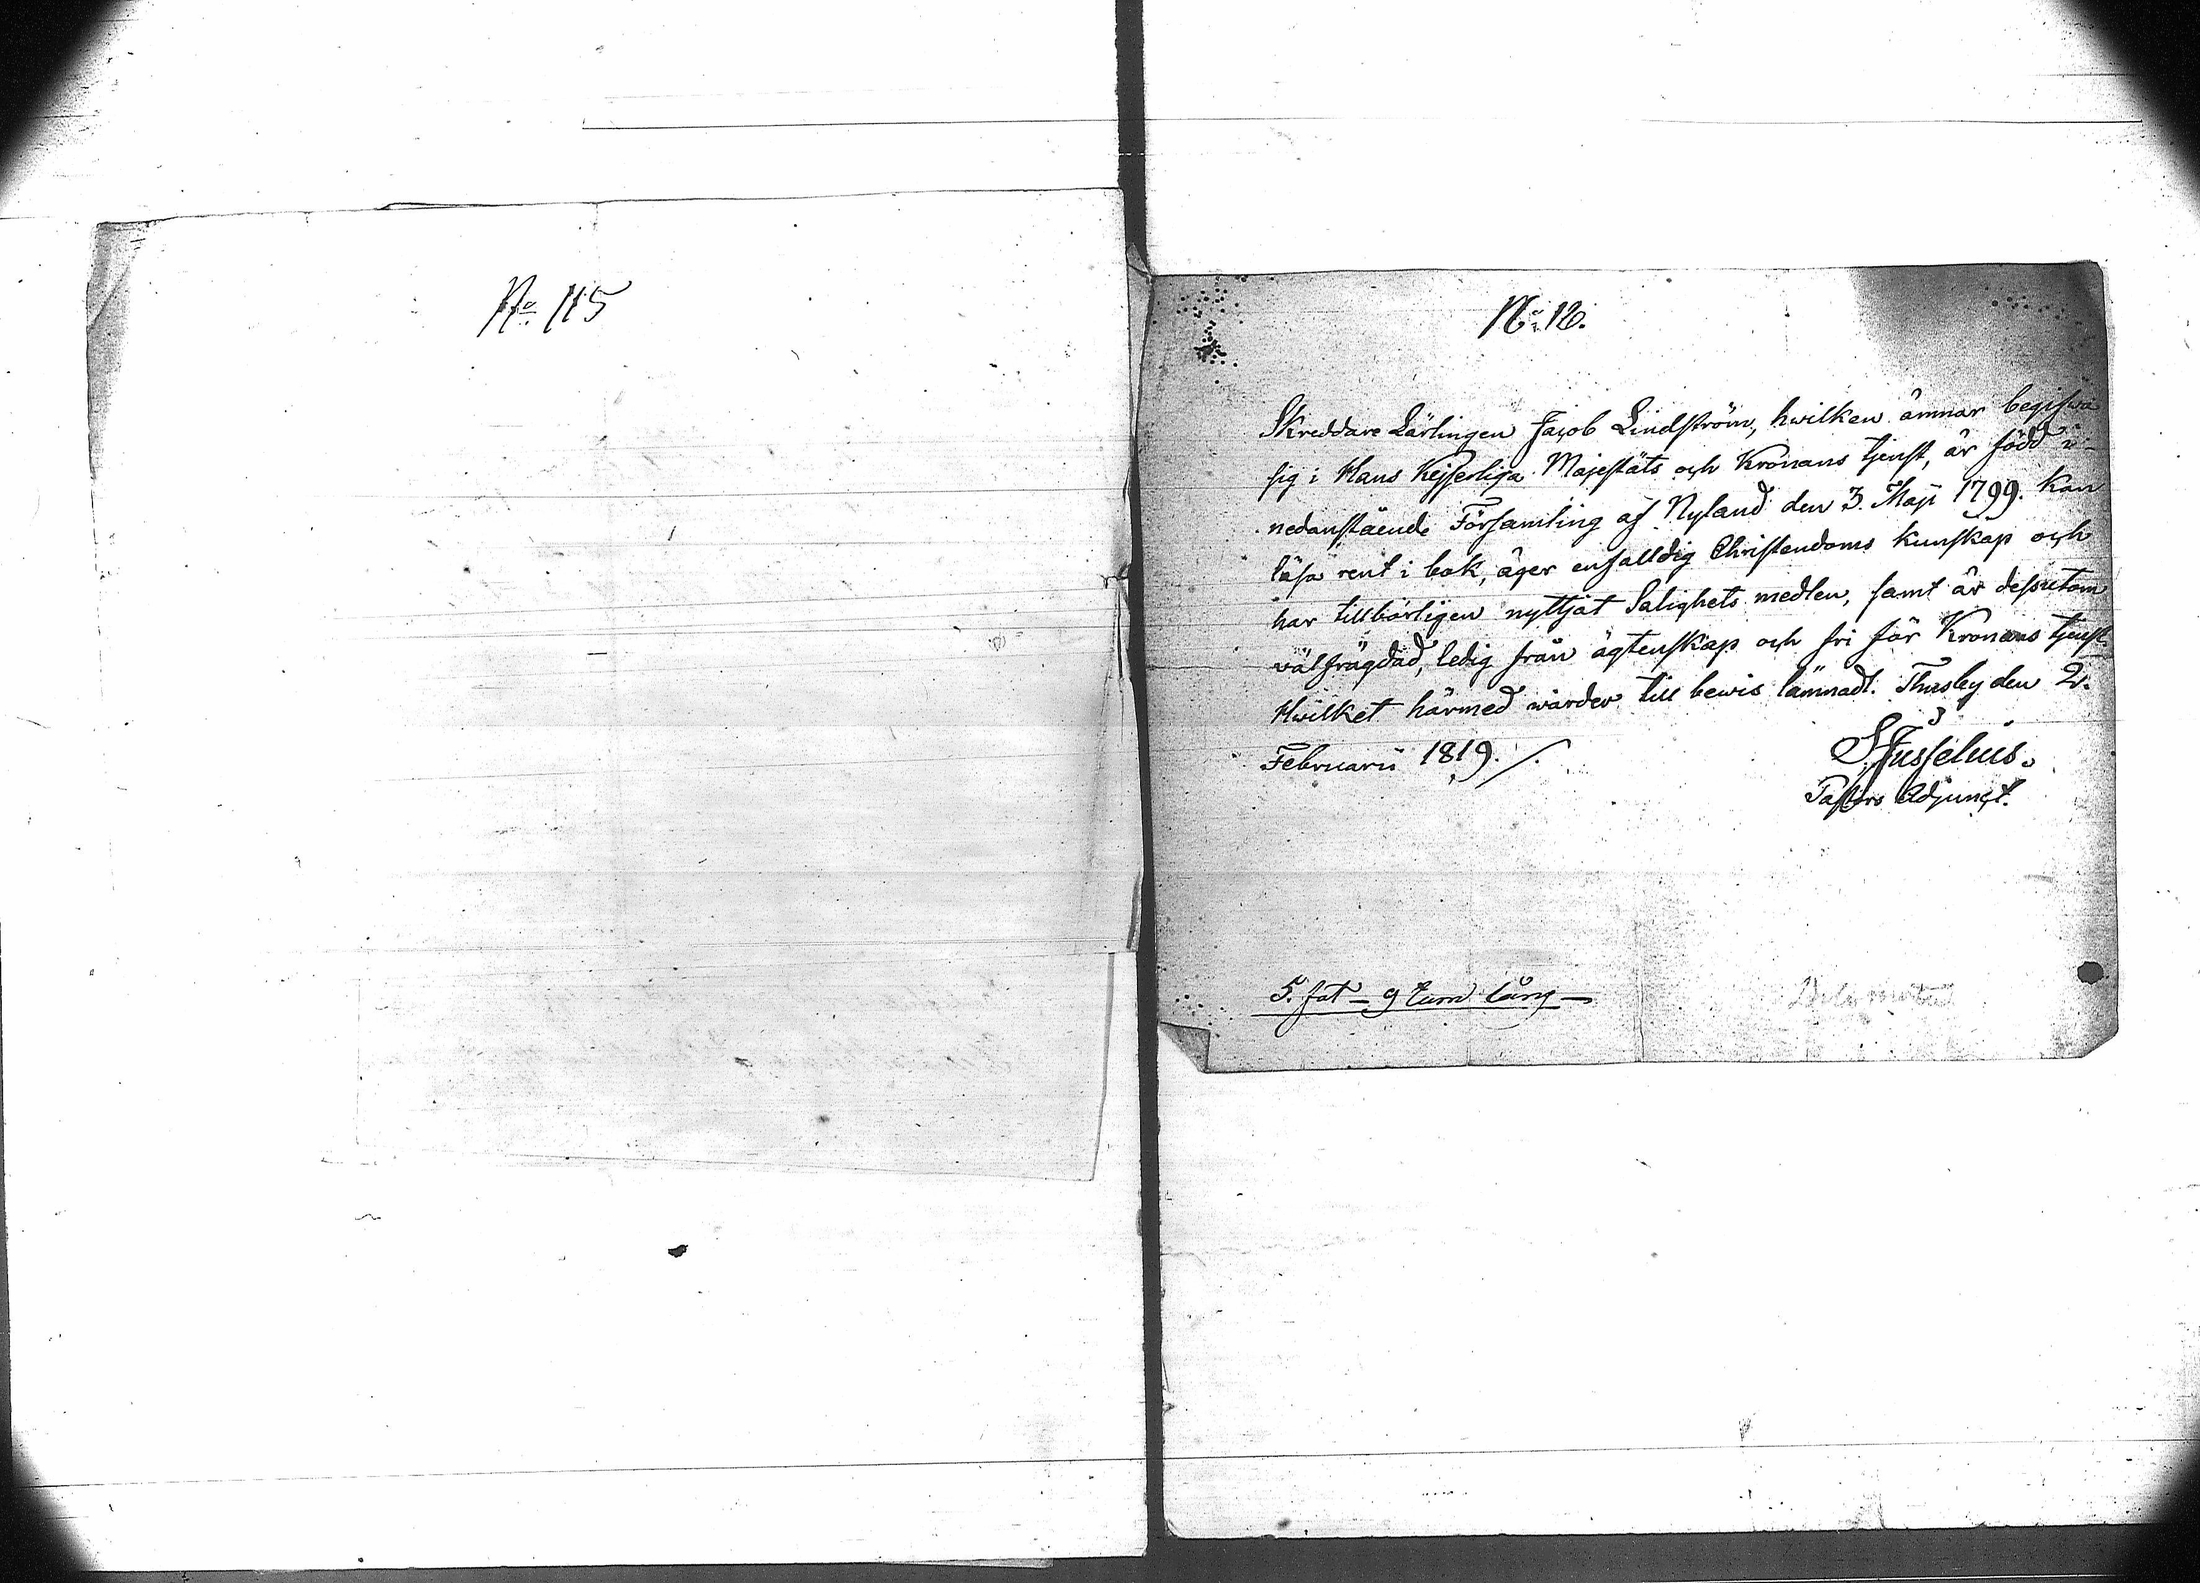 No 115
No 12.
Skreddare Lärlingen Jacob Lindström, hwilken ämnar begifwa
sig i Hans Kejserliga Majestäts och Kronans tjenst, är född i
nedanstående Församling af Nyland den 3. Maji 1799. Kan
läsa rent i bok, äger enfalldig Christendoms kunskap och
har tillbörligen nyttjat Salighets medlen, samt är dessutom
välfrägdad, ledig från ägtenskap och fri för Kronans tjenst.
Hwilket härmed warder till bewis lämnadt. Thusby den 2.
Februarii 1819. /.
Pastors Adjunct.
5. fot – 9 tum lång –